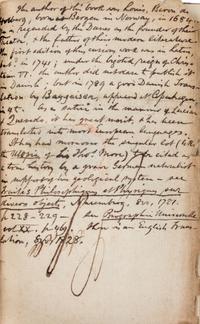 The author of this book was Louis, Baron de
Holberg, born at Bergen in Norway, in 1684.
is regarded by the Danes as the founder of their
theatre, & the father of their modern literature.
first edition of this curious work was in Latin,
in 1741; under the bigoted reign of Christian
VI. the author did not dare to publish it
in Danish, but in 1789 a good Danish trans-
lation by Baggesen, appeared at Copenhagen
a satire in the manner of Lucian
Quevedo, it has great merit, & has been
translated into most European languages.
Sir Thos. More) cited as
true history by a grave German naturalist
supporting his geological system - see
Philosophiques et Physiques sur
divers objects, Nuremburg, 8vo, 1781.
p. 228-229 - Biographie Universelle
vol. XX. p. 469 there is an English trans-
lation, 1828.